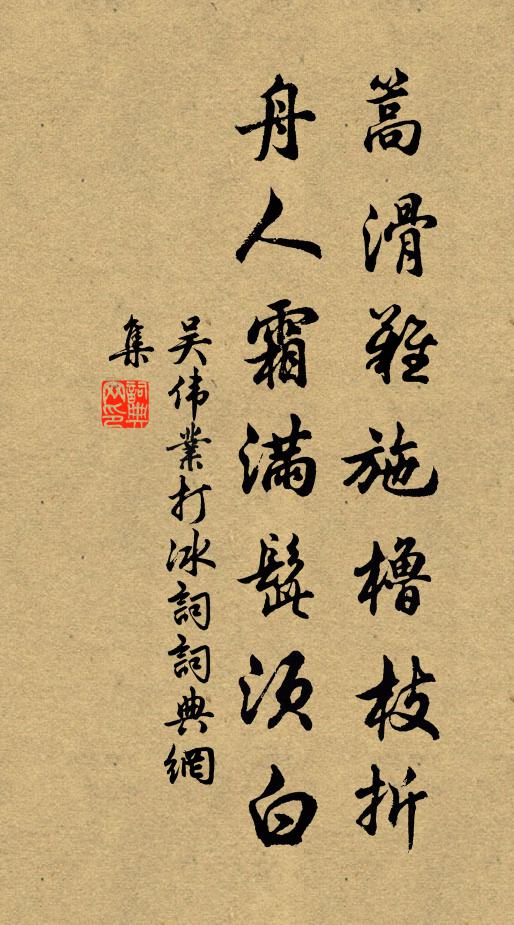 篙滑難施櫓枝折
舟人霜滿髭須白
吴伟業打冰詞詞典網
集
詞典网印